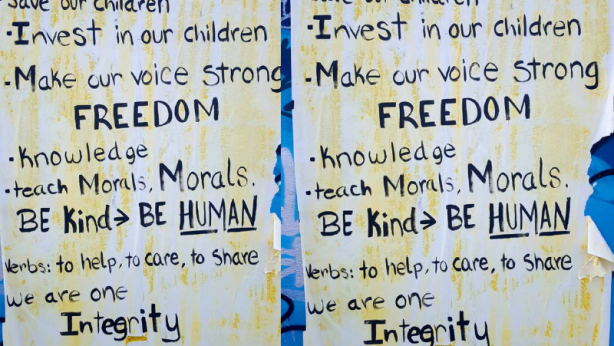 Save our children
·Invest in our children
·Make our voice strong
FREEDOM
·knowledge
·teach Morals, Morals.
BE Kind→ BE HUMAN
Verbs: to help, to care, to share
we are one
Integrity
our children
·Invest in our children
·Make our voice strong
FREEDOM
·knowledge
·teach Morals, Morals.
BE Kind→ BE HUMAN
Verbs: to help, to care, to share
we are one
Integrity